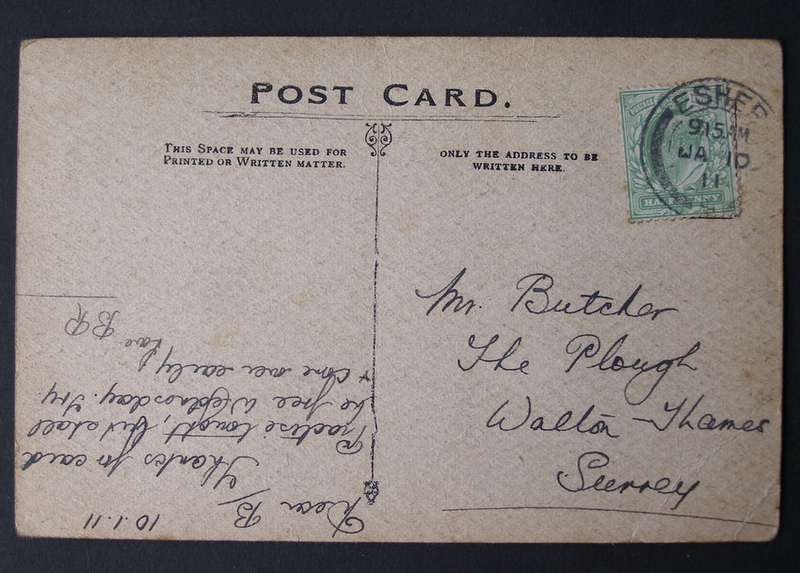 POST CARD.
THIS SPACE MAY BE USED FOR
PRINTED OR WRITTEN MATTER.
ONLY THE ADDRESS TO BE
WRITTEN HERE.
ESHER
915 AM
JA 10
11
HALFPENNY
Mr. Butcher
The Plough
Walton-Thames
Surrey
10.1.11
Dear B/
Thanks for card
Practise tonight, but shall
be free Wednesday. Try
& come over early
love
BR